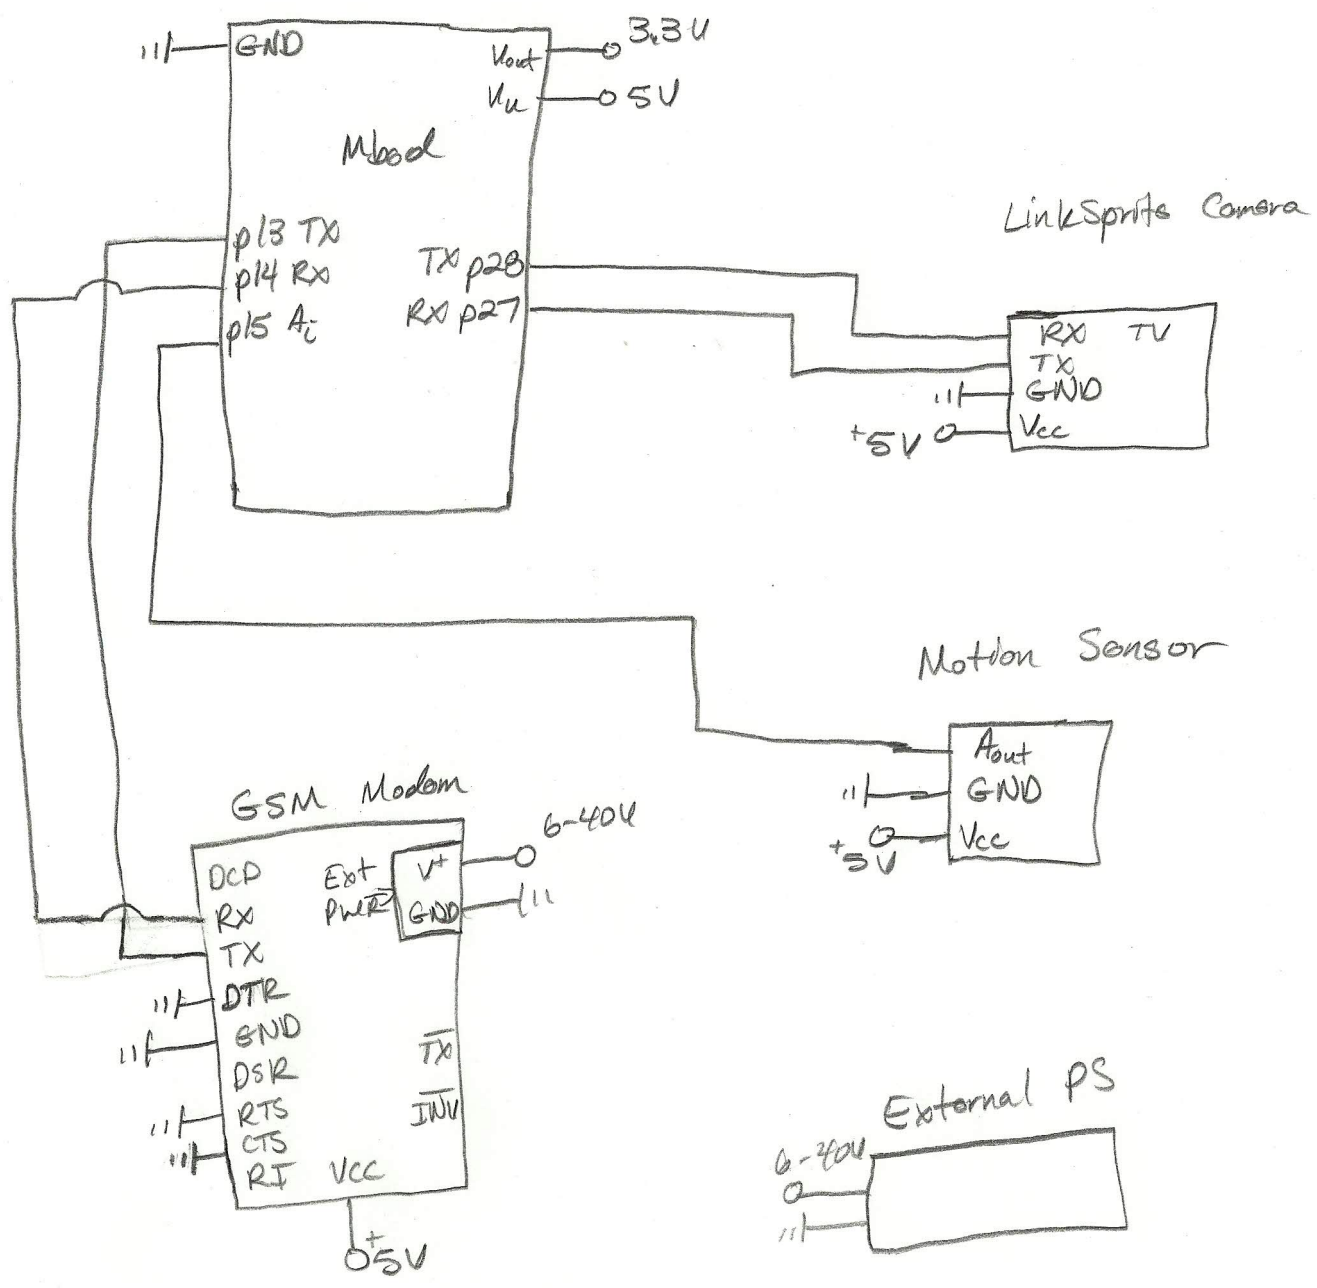 GND
Vout
3.3V
Vu
5V
Mbed
p13 TX
p14 RX
p15 Ai
TX p28
RX p27
LinkSprite Camera
RX TV
TX
GND
Vcc
+5V
Motion Sensor
Aout
GND
Vcc
+5V
GSM Modem
6-40V
DCD
RX
TX
DTR
GND
DSR
RTS
CTS
RI
Ext
PWR
V+
GND
TX
INV
VCC
+5V
External PS
6-40V